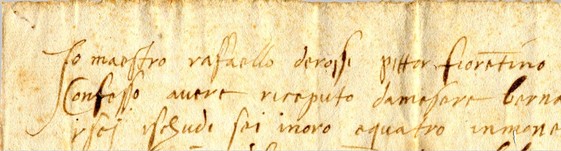 Io maestro raffaello derossi pittor fiorentino
Confesso avere riceputo damesere berna
ischudi sei inoro equatro inmone